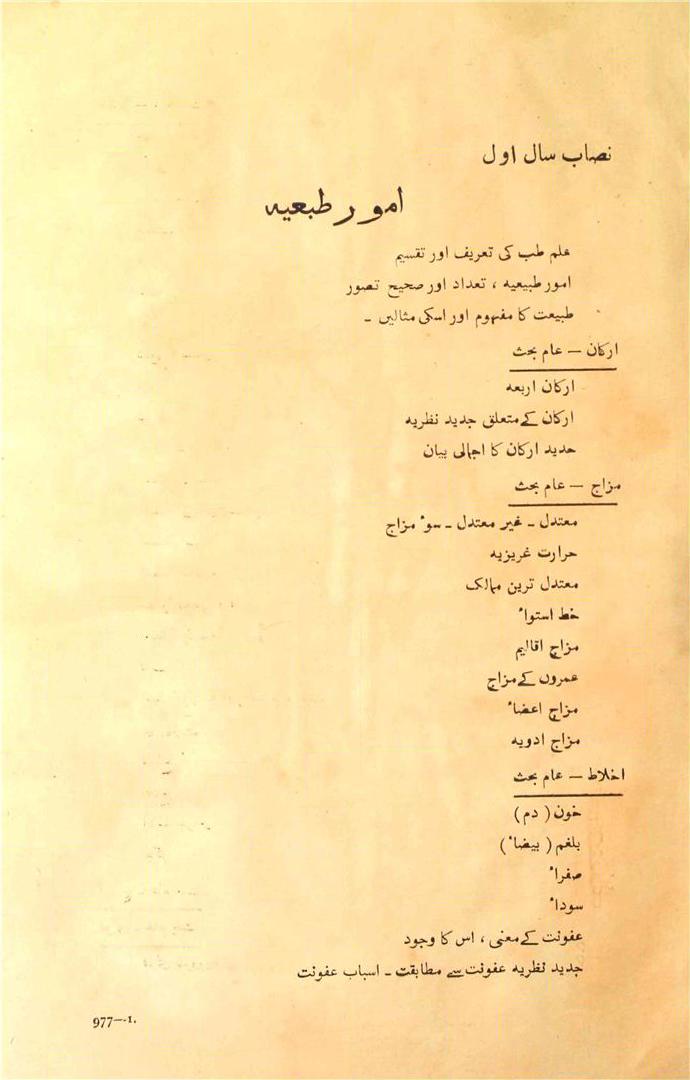 نصاب سال اول
امور طبعیه
علم طب کی تعریف اور تقسیم
امور طبیعیه ، تعداد اور صحیح تصور
طبیعت کا مفہوم اور اسکی مثالیں ۔
ارکان — عام بحث
ارکان اربعه
ارکان کے متعلق جدید نظریه
حدید ارکان کا اجمالی بیان
مزاج — عام بحث
معتدل ۔ غیر معتدل ۔ سوٴ مزاج
حرارت غریزیه
معتدل ترین ممالک
خط استواٴ
مزاج اقالیم
عمروں کے مزاج
مزاج اعضاٴ
مزاج ادویه
اخلاط — عام بحث
خون ( دم )
بلغم ( بیضاٴ )
صفراٴ
سوداٴ
عفونت کے معنی ، اس کا وجود
جدید نظریه عفونت سے مطابقت ۔ اسباب عفونت
977—1.